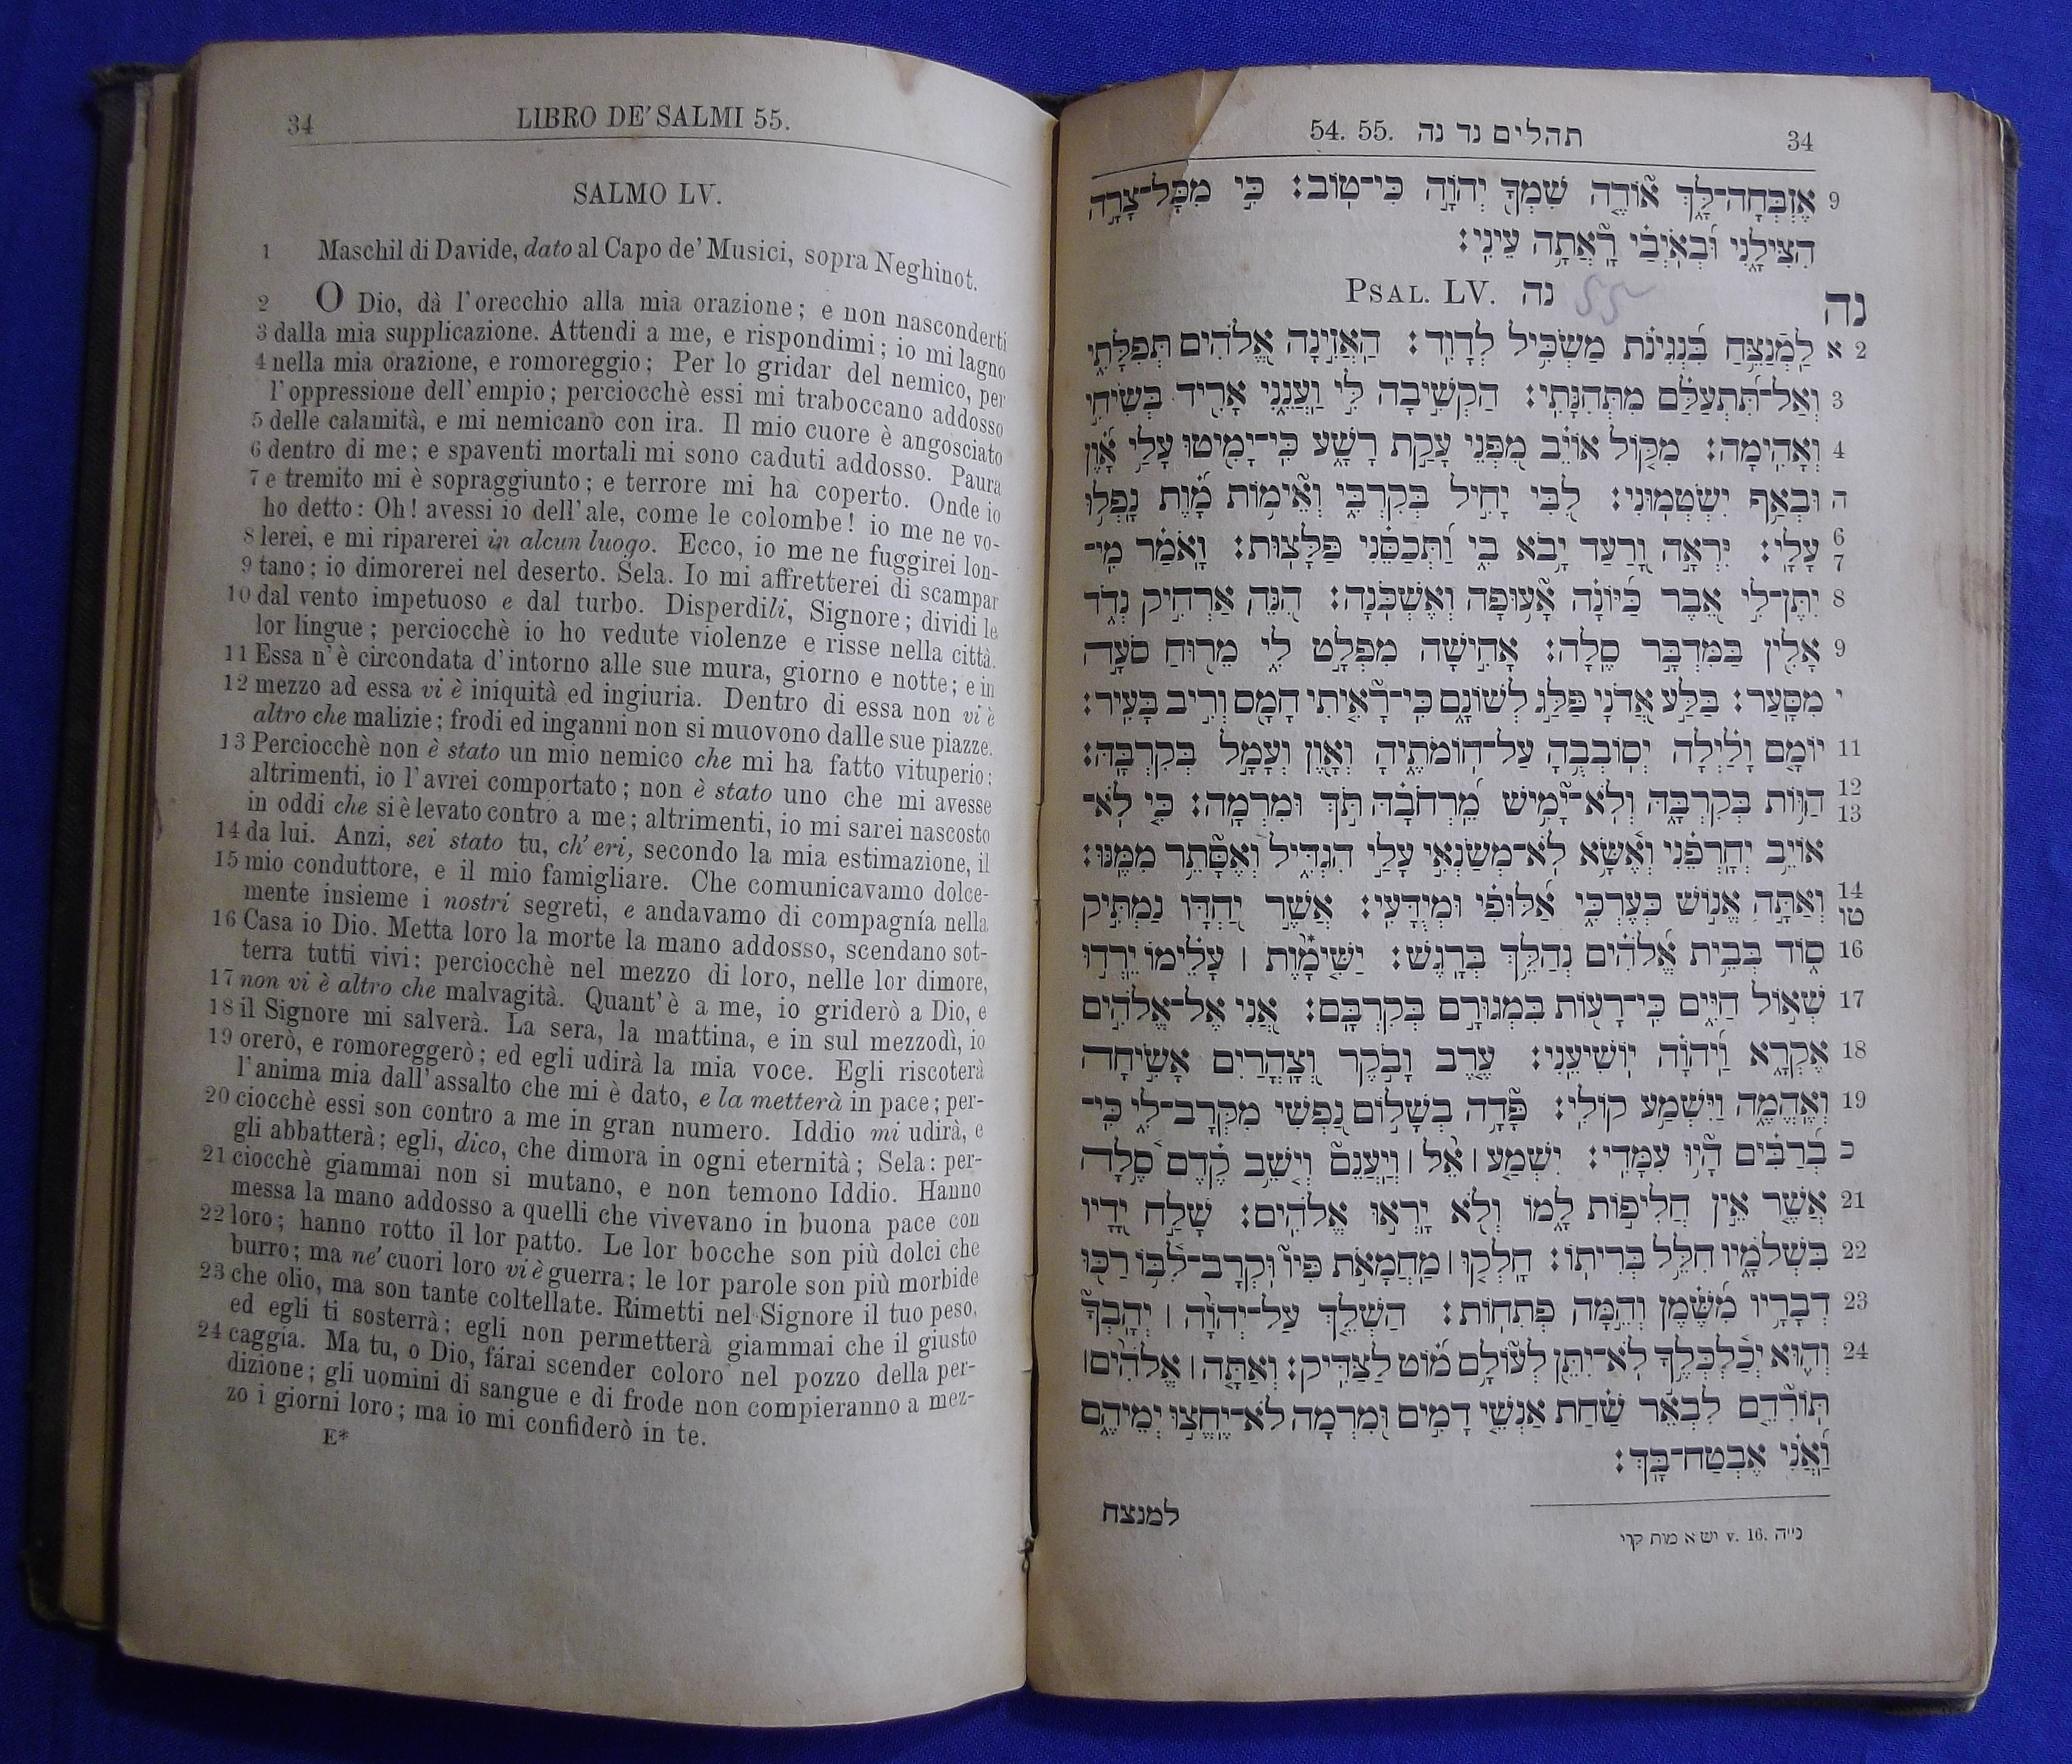 34 LIBRO DE' SALMI 55.
SALMO LV.
1 Maschil di Davide, dato al Capo de' Musici, sopra Neghinot.
2 O Dio, dà l'orecchio alla mia orazione; e non nasconderti
3 dalla mia supplicazione. Attendi a me, e rispondimi; io mi lagno
4 nella mia orazione, e romoreggio; Per lo gridar del nemico, per
l'oppressione dell'empio; perciocchè essi mi traboccano addosso
5 delle calamità, e mi nemicano con ira. Il mio cuore è angosciato
6 dentro di me; e spaventi mortali mi sono caduti addosso. Paura
7 e tremito mi è sopraggiunto; e terrore mi ha coperto. Onde io
ho detto: Oh! avessi io dell'ale, come le colombe! io me ne vo-
8 lerei, e mi riparerei in alcun luogo. Ecco, io me ne fuggirei lon-
9 tano; io dimorerei nel deserto. Sela. Io mi affretterei di scampar
10 dal vento impetuoso e dal turbo. Disperdili, Signore; dividi le
lor lingue; perciocchè io ho vedute violenze e risse nella città.
11 Essa n'è circondata d'intorno alle sue mura, giorno e notte; e in
12 mezzo ad essa vi è iniquità ed ingiuria. Dentro di essa non vi è
altro che malizie; frodi ed inganni non si muovono dalle sue piazze.
13 Perciocchè non è stato un mio nemico che mi ha fatto vituperio;
altrimenti, io l'avrei comportato; non è stato uno che mi avesse
in odio che si è levato contro a me; altrimenti, io mi sarei nascosto
14 da lui. Anzi, sei stato tu, ch'eri, secondo la mia estimazione, il
15 mio conduttore, e il mio famigliare. Che comunicavamo dolce-
mente insieme i nostri segreti, e andavamo di compagnía nella
16 Casa io Dio. Metta loro la morte la mano addosso, scendano sot-
terra tutti vivi; perciocchè nel mezzo di loro, nelle lor dimore,
17 non vi è altro che malvagità. Quant'è a me, io griderò a Dio, e
18 il Signore mi salverà. La sera, la mattina, e in sul mezzodì, io
19 orerò, e romoreggerò; ed egli udirà la mia voce. Egli riscoterà
l'anima mia dall'assalto che mi è dato, e la metterà in pace; per-
20 ciocchè essi son contro a me in gran numero. Iddio mi udirà, e
gli abbatterà; egli, dico, che dimora in ogni eternità; Sela: per-
21 ciocchè giammai non si mutano, e non temono Iddio. Hanno
messa la mano addosso a quelli che vivevano in buona pace con
22 loro; hanno rotto il lor patto. Le lor bocche son più dolci che
burro; ma ne' cuori loro vi è guerra; le lor parole son più morbide
23 che olio, ma son tante coltellate. Rimetti nel Signore il tuo peso,
ed egli ti sosterrà; egli non permetterà giammai che il giusto
24 caggia. Ma tu, o Dio, farai scender coloro nel pozzo della per-
dizione; gli uomini di sangue e di frode non compieranno a mez-
zo i giorni loro; ma io mi confiderò in te.
E*
54. 55. תהלים נד נה 34
9 אֶזְבְּחָה־לָּךְ אוֹדֶה שִׁמְךָ יְהוָה כִּי־טוֹב׃ כִּי מִכָּל־צָרָה
הִצִּילָנִי וּבְאֹיְבַי רָאֲתָה עֵינִי׃
PSAL. LV. נה 55 נה
2 א לַמְנַצֵּחַ בִּנְגִינֹת מַשְׂכִּיל לְדָוִד׃ הַאֲזִינָה אֱלֹהִים תְּפִלָּתִי
3 וְאַל־תִּתְעַלַּם מִתְּחִנָּתִי׃ הַקְשִׁיבָה לִּי וַעֲנֵנִי אָרִיד בְּשִׂיחִי
4 וְאָהִימָה׃ מִקּוֹל אוֹיֵב מִפְּנֵי עָקַת רָשָׁע כִּי־יָמִיטוּ עָלַי אָוֶן
ה וּבְאַף יִשְׂטְמוּנִי׃ לִבִּי יָחִיל בְּקִרְבִּי וְאֵימוֹת מָוֶת נָפְלוּ
6 7 עָלָי׃ יִרְאָה וָרַעַד יָבֹא בִי וַתְּכַסֵּנִי פַּלָּצוּת׃ וָאֹמַר מִי־
8 יִתֶּן־לִי אֵבֶר כַּיּוֹנָה אָעוּפָה וְאֶשְׁכֹּנָה׃ הִנֵּה אַרְחִיק נְדֹד
9 אָלִין בַּמִּדְבָּר סֶלָה׃ אָחִישָׁה מִפְלָט לִי מֵרוּחַ סֹעָה
י מִסָּעַר׃ בַּלַּע אֲדֹנָי פַּלַּג לְשׁוֹנָם כִּי־רָאִיתִי חָמָס וְרִיב בָּעִיר׃
11 יוֹמָם וָלַיְלָה יְסוֹבְבֻהָ עַל־חוֹמֹתֶיהָ וְאָוֶן וְעָמָל בְּקִרְבָּהּ׃
12 13 הַוּוֹת בְּקִרְבָּהּ וְלֹא־יָמִישׁ מֵרְחֹבָהּ תֹּךְ וּמִרְמָה׃ כִּי לֹא־
אוֹיֵב יְחָרְפֵנִי וְאֶשָּׂא לֹא־מְשַׂנְאִי עָלַי הִגְדִּיל וְאֶסָּתֵר מִמֶּנּוּ׃
14 טו וְאַתָּה אֱנוֹשׁ כְּעֶרְכִּי אַלּוּפִי וּמְיֻדָּעִי׃ אֲשֶׁר יַחְדָּו נַמְתִּיק
16 סוֹד בְּבֵית אֱלֹהִים נְהַלֵּךְ בְּרָגֶשׁ׃ יַשִּׁימָוֶת ׀ עָלֵימוֹ יֵרְדוּ
17 שְׁאוֹל חַיִּים כִּי־רָעוֹת בִּמְגוּרָם בְּקִרְבָּם׃ אֲנִי אֶל־אֱלֹהִים
18 אֶקְרָא וַיהוָה יוֹשִׁיעֵנִי׃ עֶרֶב וָבֹקֶר וְצָהֳרַיִם אָשִׂיחָה
19 וְאֶהֱמֶה וַיִּשְׁמַע קוֹלִי׃ פָּדָה בְשָׁלוֹם נַפְשִׁי מִקֲּרָב־לִי כִּי־
כ בְרַבִּים הָיוּ עִמָּדִי׃ יִשְׁמַע ׀ אֵל ׀ וְיַעֲנֵם וְיֹשֵׁב קֶדֶם סֶלָה
21 אֲשֶׁר אֵין חֲלִיפוֹת לָמוֹ וְלֹא יָרְאוּ אֱלֹהִים׃ שָׁלַח יָדָיו
22 בִּשְׁלֹמָיו חִלֵּל בְּרִיתוֹ׃ חָלְקוּ ׀ מַחְמָאֹת פִּיו וּקְרָב־לִבּוֹ רַכּוּ
23 דְבָרָיו מִשֶּׁמֶן וְהֵמָּה פְתִחוֹת׃ הַשְׁלֵךְ עַל־יְהוָה ׀ יְהָבְךָ
24 וְהוּא יְכַלְכְּלֶךָ לֹא־יִתֵּן לְעוֹלָם מוֹט לַצַּדִּיק׃ וְאַתָּה ׀ אֱלֹהִים ׀
תּוֹרִדֵם לִבְאֵר שַׁחַת אַנְשֵׁי דָמִים וּמִרְמָה לֹא־יֶחֱצוּ יְמֵיהֶם
וַאֲנִי אֶבְטַח־בָּךְ׃
למנצח
נ״ה v. 16. ישא מות קרי